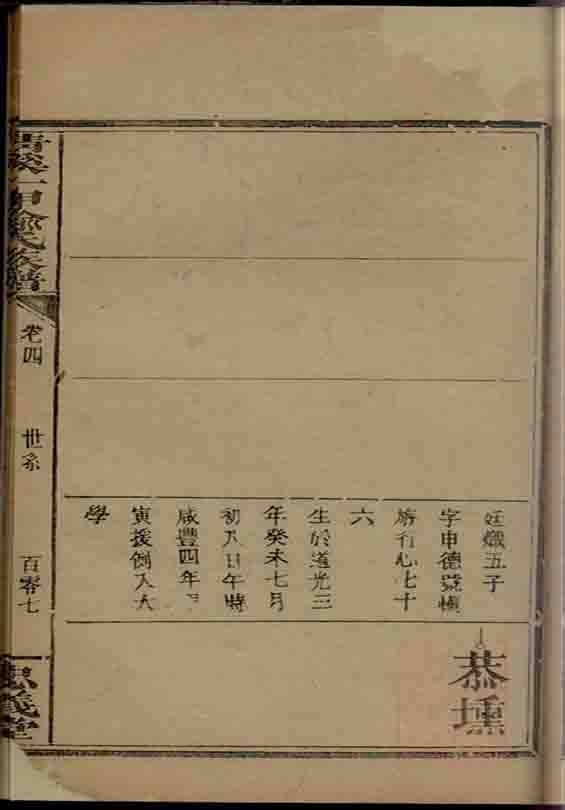 廷熾五子
字申德號慎
旃行心七十
六
生於道光三
年癸未七月
初八日午時
咸豐四年
寅援例入太
學
恭壎
清溪一甲氏族譜
卷四
世系
百零七
忠義堂